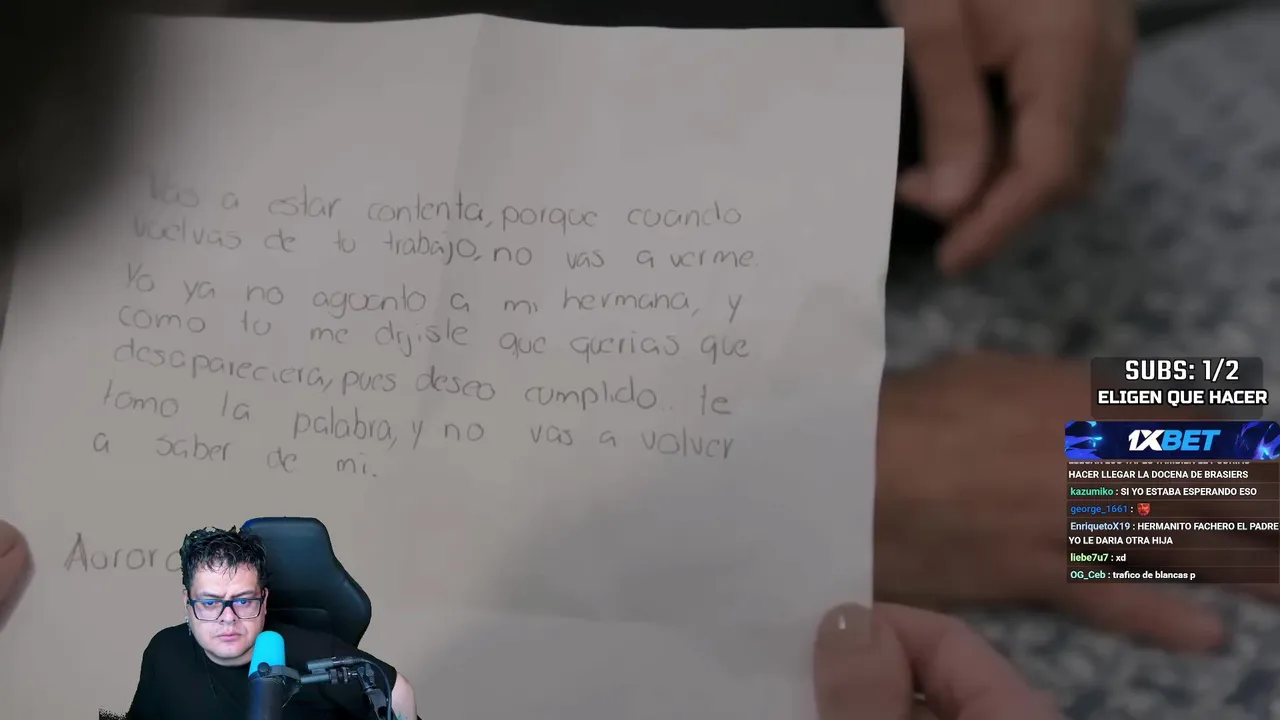 Vas a estar contenta, porque cuando
vuelvas de tu trabajo, no vas a verme.
Yo ya no aguanto a mi hermana, y
como tu me dijiste que querias que
desapareciera, pues deseo cumplido.. te
tomo la palabra, y no vas a volver
a saber de mi.
Aurora
SUBS: 1/2
ELIGEN QUE HACER
1XBET
HACER LLEGAR LA DOCENA DE BRASIERS
kazumiko : SI YO ESTABA ESPERANDO ESO
george_1661 :
EnriquetoX19 : HERMANITO FACHERO EL PADRE
YO LE DARIA OTRA HIJA
liebe7u7 : xd
OG_Ceb : trafico de blancas p